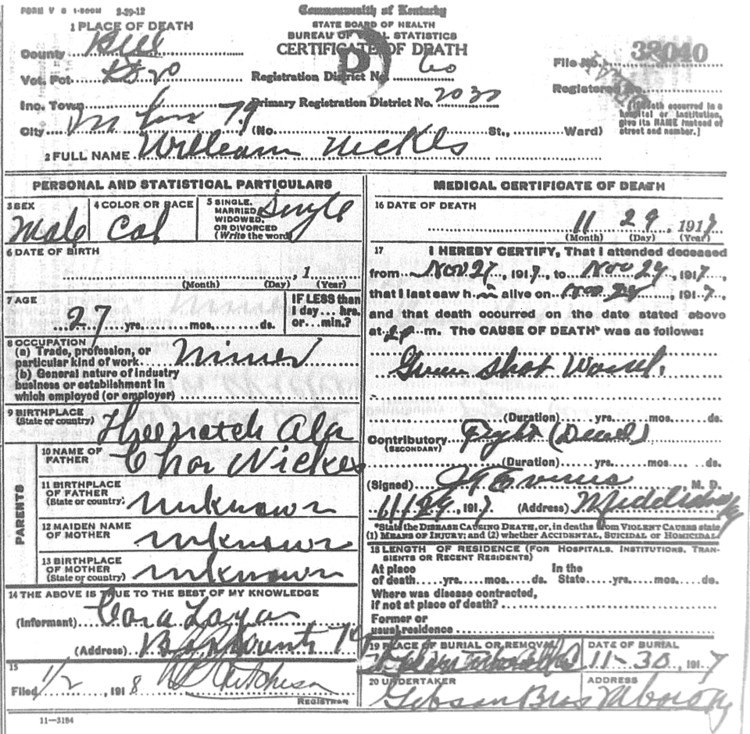 FORM V S 1-500M 2-29-12
Commonwealth of Kentucky
STATE BOARD OF HEALTH
BUREAU OF VITAL STATISTICS
CERTIFICATE OF DEATH
1 PLACE OF DEATH
County Bell
Vot. Pct.
Registration District No. 60
File No. 38040
Registered No.
Inc. Town
Primary Registration District No. 7030
City (No. St., Ward)
(If death occurred in a hospital or institution, give its NAME instead of street and number.)
2 FULL NAME William Nickls
PERSONAL AND STATISTICAL PARTICULARS
3 SEX Male
4 COLOR OR RACE Col
5 SINGLE, MARRIED, WIDOWED, OR DIVORCED (Write the word) Single
6 DATE OF BIRTH
, 1
(Month) (Day) (Year)
7 AGE
27 yrs. mos. ds.
IF LESS than 1 day... hrs. or... min.?
8 OCCUPATION
(a) Trade, profession, or particular kind of work Miner
(b) General nature of industry business or establishment in which employed (or employer)
9 BIRTHPLACE
(State or country) Ala
PARENTS
10 NAME OF FATHER Chas Nickes
11 BIRTHPLACE OF FATHER (State or country) Unknown
12 MAIDEN NAME OF MOTHER Unknown
13 BIRTHPLACE OF MOTHER (State or country) Unknown
14 THE ABOVE IS TRUE TO THE BEST OF MY KNOWLEDGE
(Informant) Cora
(Address)
15
Filed 1/2, 1918
REGISTRAR
11-3184
MEDICAL CERTIFICATE OF DEATH
16 DATE OF DEATH
11 29 1917
(Month) (Day) (Year)
17 I HEREBY CERTIFY, That I attended deceased
from Nov 27, 1917, to Nov 29, 1917,
that I last saw h alive on Nov 29, 1917,
and that death occurred on the date stated above
at m. The CAUSE OF DEATH* was as follows:
Gun shot
(Duration) yrs. mos. ds.
Contributory (SECONDARY) Fight
(Duration) yrs. mos. ds.
(Signed) M. D.
11/29, 1917 (Address)
*State the DISEASE CAUSING DEATH, or, in deaths from VIOLENT CAUSES state
(1) MEANS OF INJURY; and (2) whether ACCIDENTAL, SUICIDAL or HOMICIDAL
18 LENGTH OF RESIDENCE (FOR HOSPITALS, INSTITUTIONS, TRANSIENTS OR RECENT RESIDENTS)
At place of death yrs. mos. ds. In the State yrs. mos. ds.
Where was disease contracted, if not at place of death?
Former or usual residence
19 PLACE OF BURIAL OR REMOVAL
DATE OF BURIAL
11-30, 1917
20 UNDERTAKER
Gibson Bros
ADDRESS